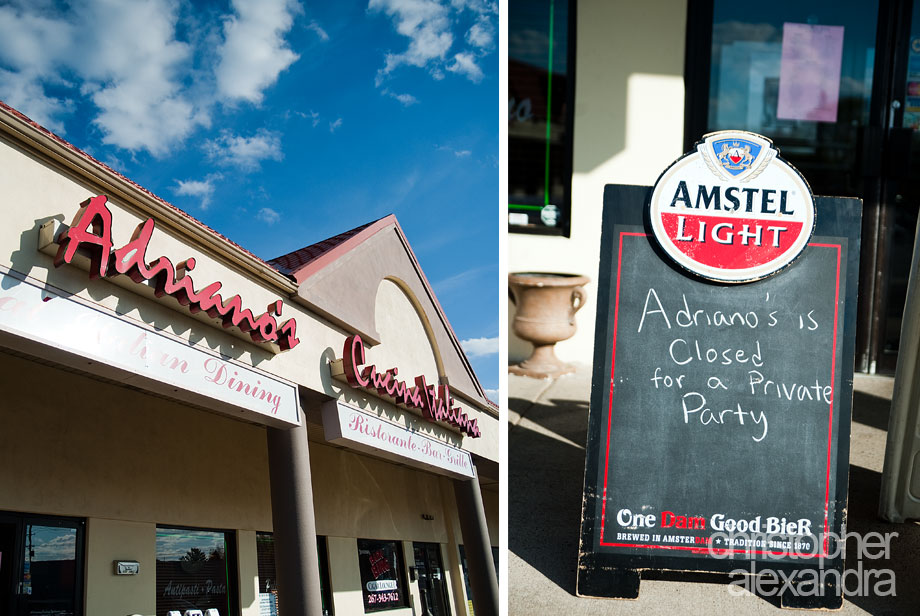 Adriano's
Italian Dining
Cucina Italiana
Ristorante-Bar-Grille
Antipasti • Pasta
267-343-7612
AMSTEL
LIGHT
Adriano's is
Closed
for a Private
Party
One Dam Good BieR
BREWED IN AMSTERDAM ★ TRADITION SINCE 1870
christopher
alexandra